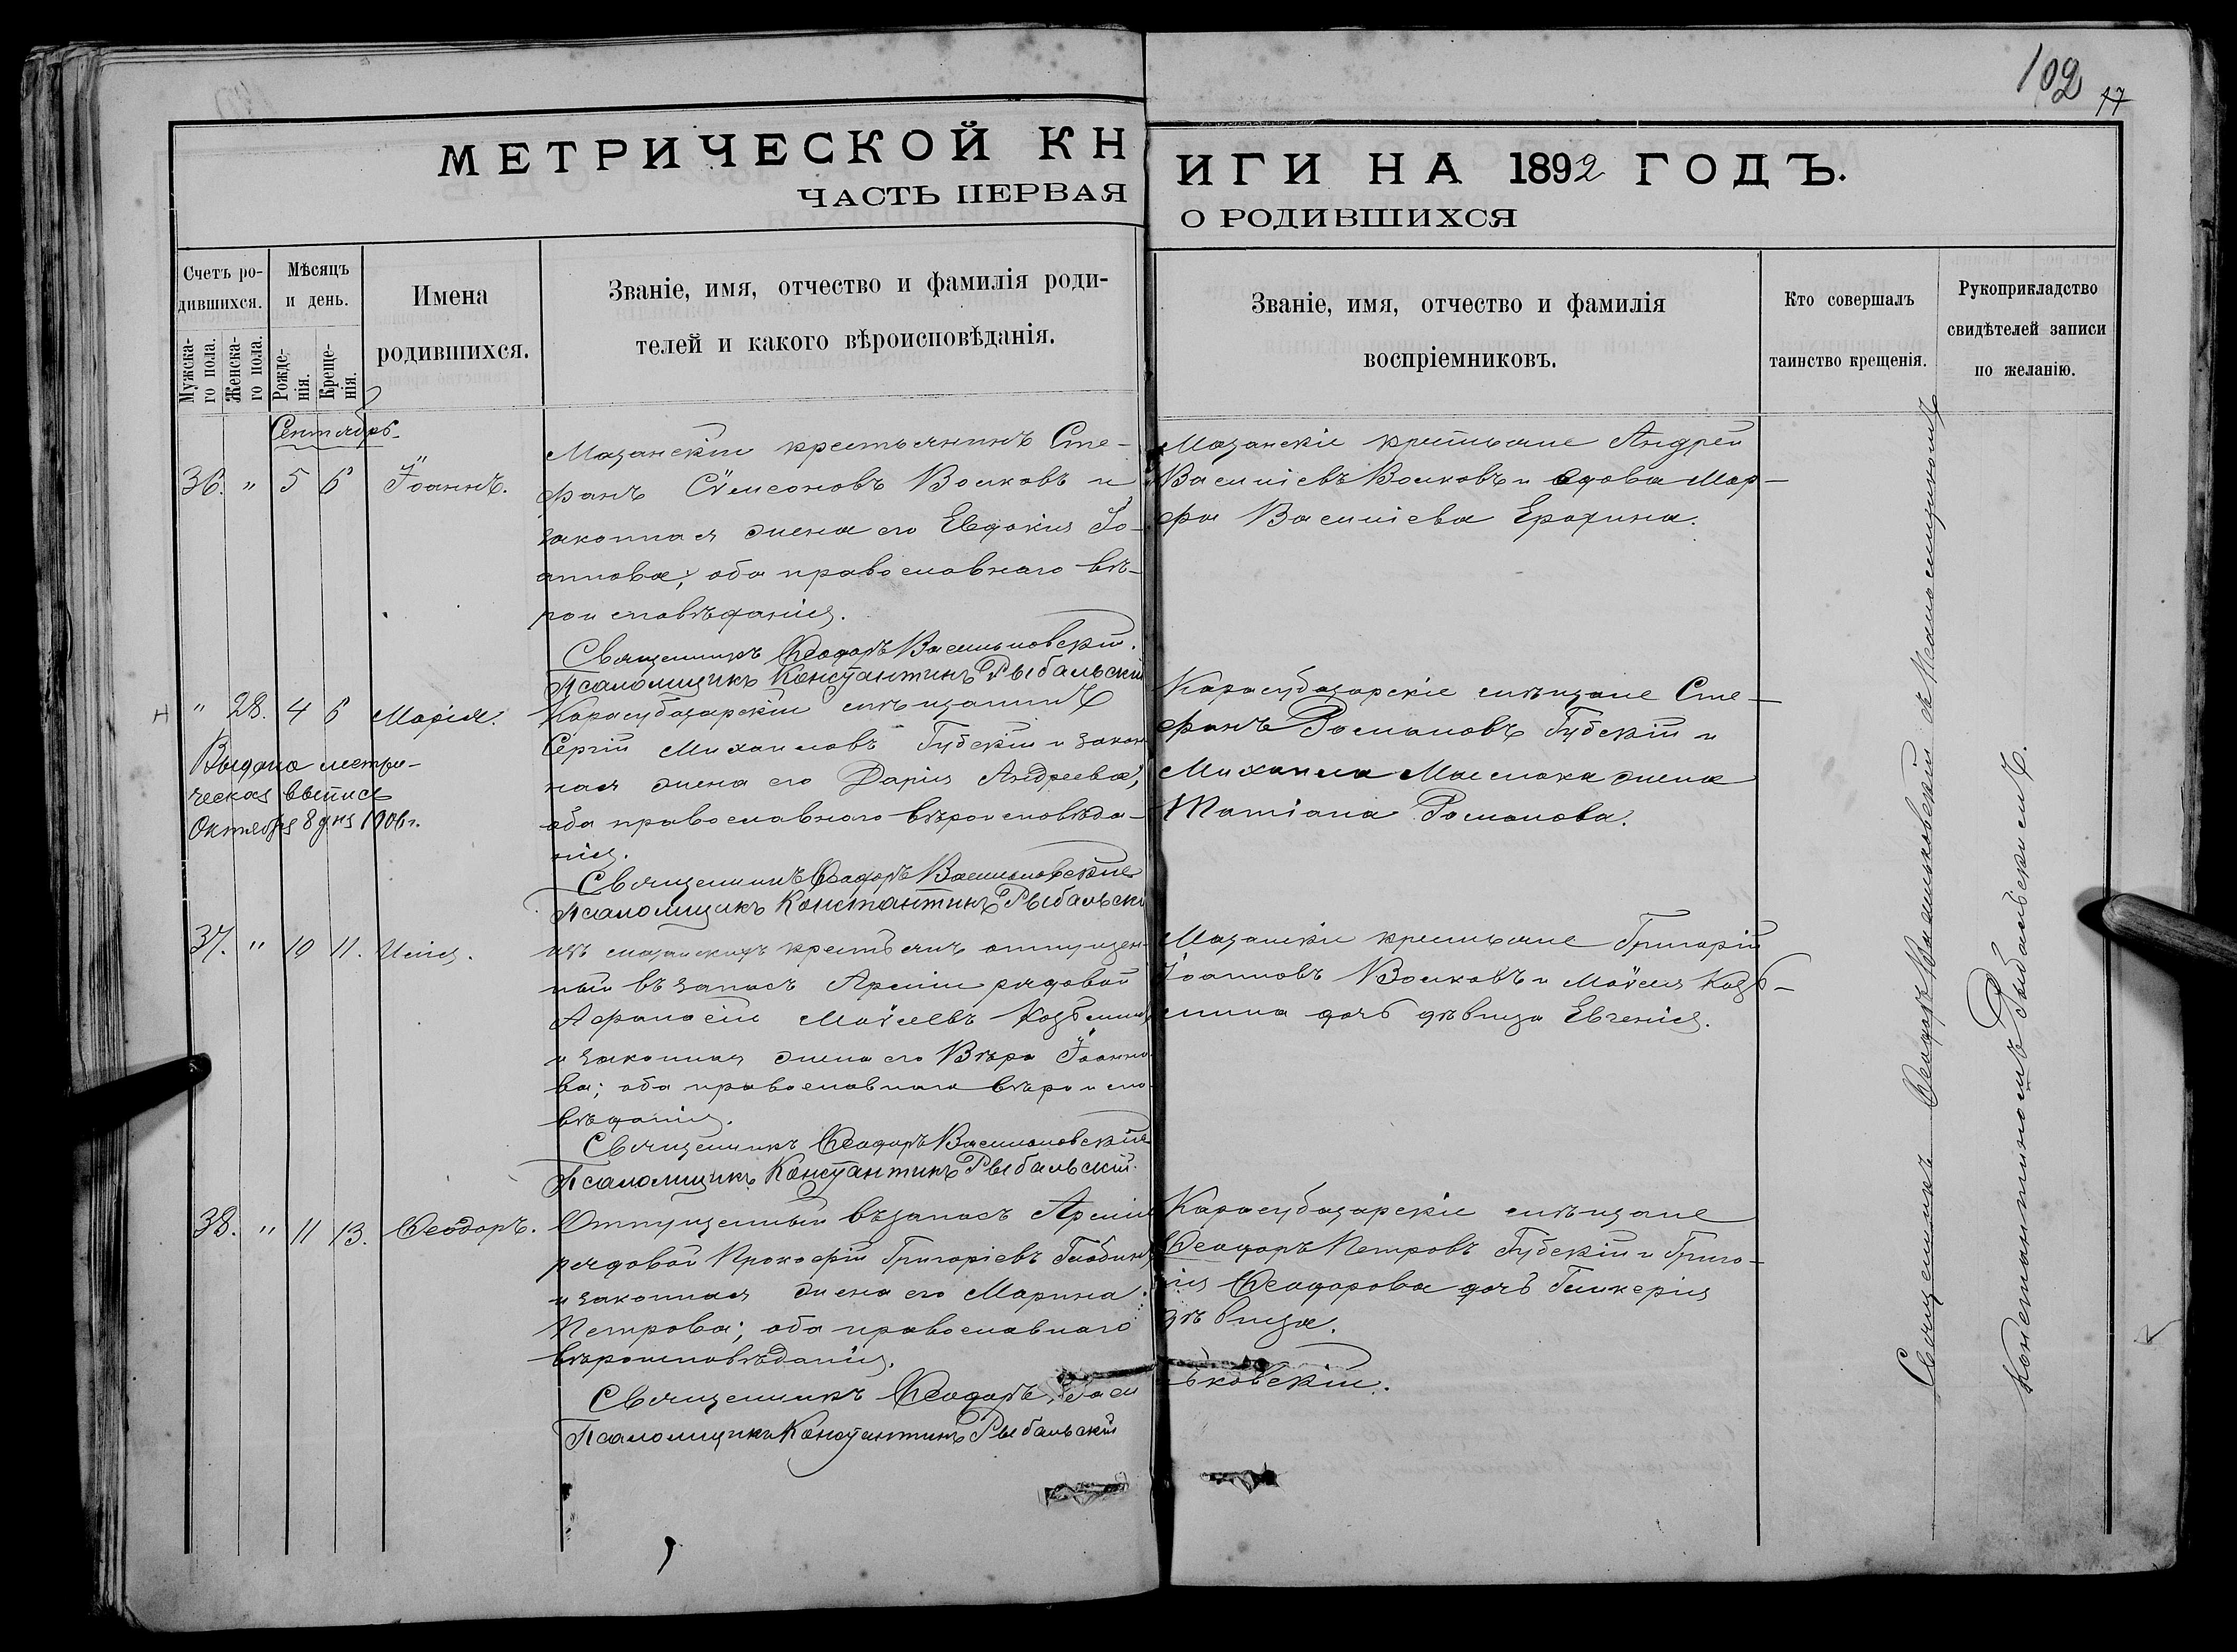 102 17
МЕТРИЧЕСКОЙ КНИГИ НА 1892 ГОДЪ.
ЧАСТЬ ПЕРВАЯ О РОДИВШИХСЯ
Счетъ ро-
дившихся.
Мужска-
го пола.
Женска-
го пола.
Мѣсяцъ
и день.
Рожде-
нія.
Креще-
нія.
Имена
родившихся.
Званіе, имя, отчество и фамилія роди-
телей и какого вѣроисповѣданія.
Званіе, имя, отчество и фамилія
воспріемниковъ.
Кто совершалъ
таинство крещенія.
Рукоприкладство
свидѣтелей записи
по желанію.
Сентябрь
36. " 5 6 Іоаннъ.
Мазанскій крестьянинъ Сте-
фанъ Сѵмеоновъ Волковъ и
законная жена его Евдокія Іо-
аннова; оба православнаго вѣ-
роисповѣданія.
Священникъ Ѳеодоръ Васильковскій.
Псаломщикъ Константинъ Рыбальскій
Мазанскіе крестьяне Андрей
Василіевъ Волковъ и вдова Мар-
фа Василіева Ерохина.
" 28. 4 6 Марія.
Выдана метри-
ческая выпись
Октября 8 дня 1906 г.
Карасубазарскій мѣщанинъ
Сергій Михаиловъ Губскій и закон-
ная жена его Дарія Андреева;
оба православнаго вѣроисповѣда-
нія.
Священникъ Ѳеодоръ Васильковскій
Псаломщикъ Константинъ Рыбальскі
Карасубазарскіе мѣщане Сте-
фанъ Романовъ Губскій и
Михаила Маслока жена
Татіана Романова.
37. " 10 11. Илія.
изъ мазанскихъ крестьянъ отпущен-
ный въ запасъ Арміи рядовой
Афанасій Моѵсеевъ Козьминъ
и законная жена его Вѣра Іоанно-
ва; оба православнаго вѣроиспо-
вѣданія.
Священникъ Ѳеодоръ Васильковскій
Псаломщикъ Константинъ Рыбальскій.
Мазанскіе крестьяне Григорій
Іоанновъ Волковъ и Моѵсея Козь-
мина дочь дѣвица Евгенія.
38. " 11 13. Ѳеодоръ.
Отпущенный въ запасъ Арміи
рядовой Прокофій Григоріевъ
и законная жена его Марина
Петрова; оба православнаго
вѣроисповѣданія.
Священникъ Ѳеодоръ Васильковскій.
Псаломщикъ Константинъ Рыбальскій
Карасубазарскіе мѣщане
Ѳеодоръ Петровъ Губскій и Григо-
рія Ѳеодорова дочь Гликерія
дѣвица.
Священникъ Ѳеодоръ Васильковскій съ Псаломщикомъ
Константиномъ Рыбальскимъ.